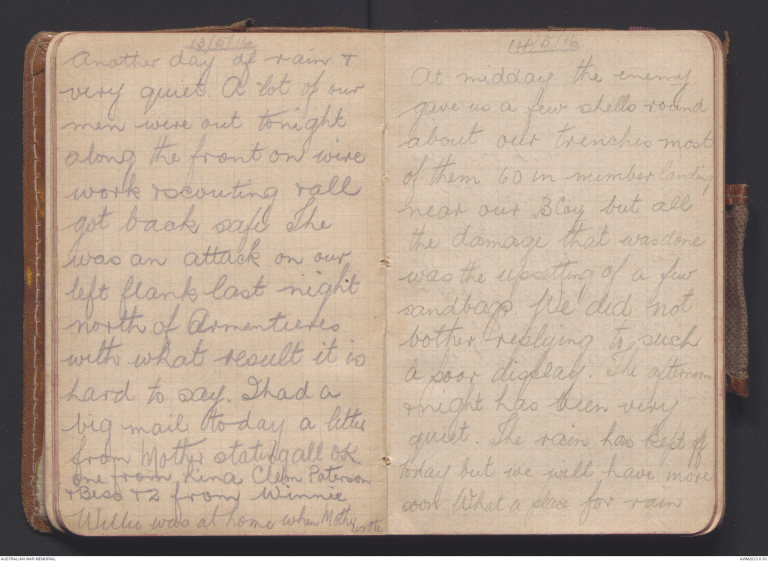 13/5/16
Another day of rain &
very quiet. A lot of our
men were out tonight
along the front on wire
work & scouting & all
got back safe. The
was an attack on our
left flank last night
north of Armentieres
with what result it is
hard to say. I had a
big mail today a little
from Mother stating all OK
one from Lina Clem Paterson
& Bess & 2 from Winnie
Willie was at home when Mother wrote
14/5/16
At midday the enemy
gave us a few shells round
about our trenches most
of them 60 in number landing
near our B Coy but all
the damage that was done
was the upsetting of a few
sandbags. We did not
bother replying to such
a poor display. The afternoon
& night has been very
quiet. The rain has kept off
today but we will have more
soon. What a place for rain
AUSTRALIAN WAR MEMORIAL